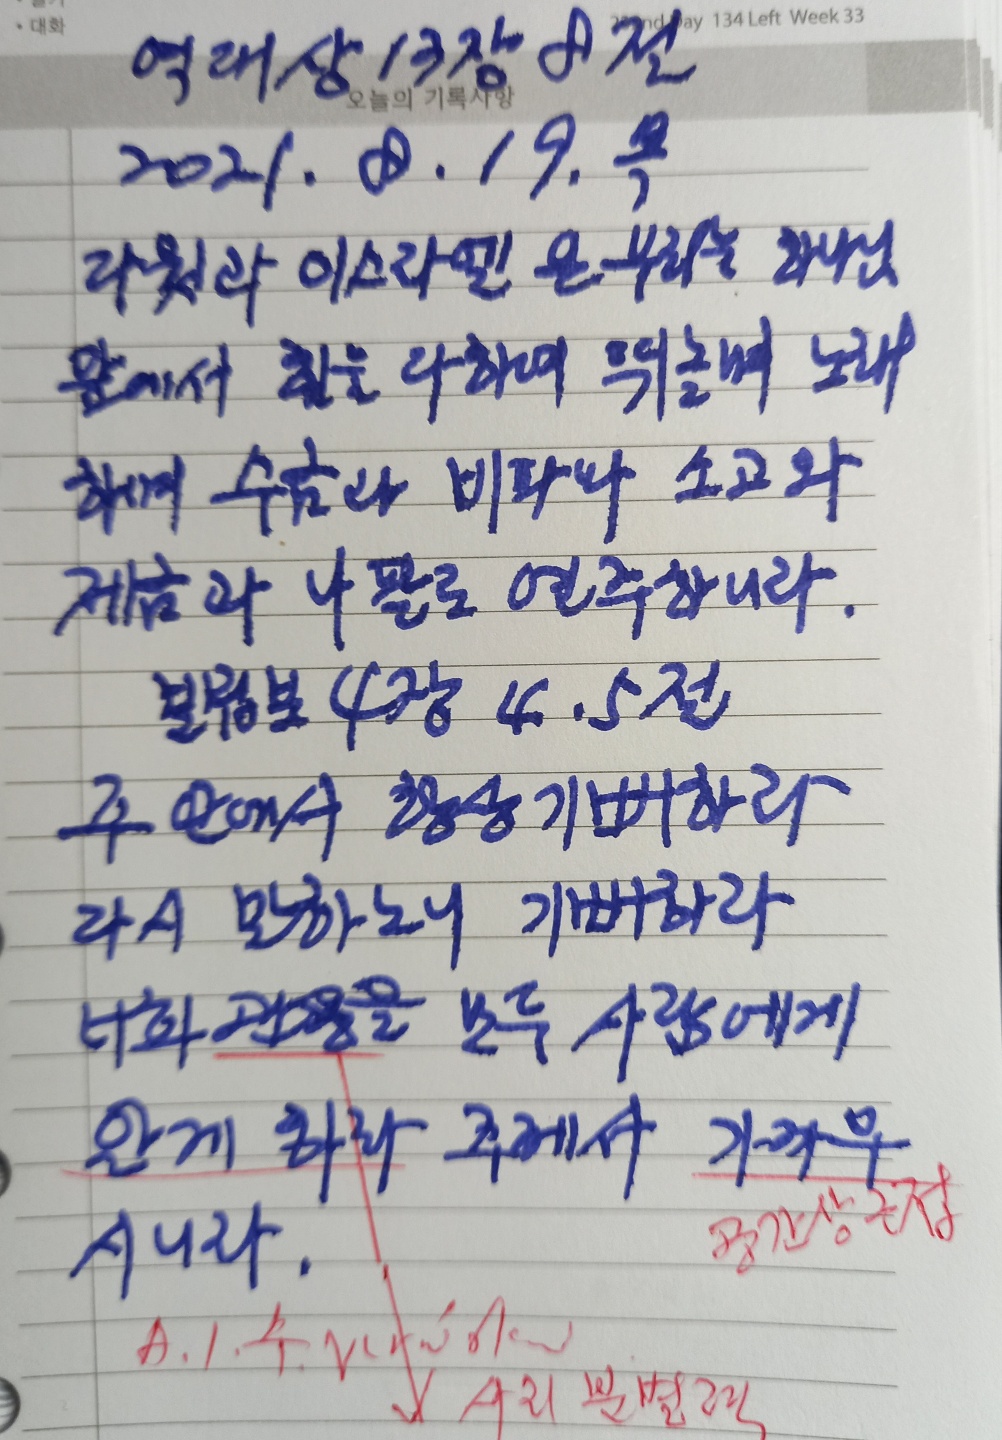 • 대화
Day 134 Left Week 33
역대상 13장 8절
오늘의 기록사항
2021. 8. 19. 목
다윗과 이스라엘 온 무리는 하나님
앞에서 힘을 다하여 뛰놀며 노래
하며 수금과 비파와 소고와
제금과 나팔로 연주하니라.
빌립보 4장 4.5절
주 안에서 항상 기뻐하라
다시 말하노니 기뻐하라
너희 관용을 모든 사람에게
알게 하라 주께서 가까우
시니라.
공간상 근접
A.1.수.
사리 분별력